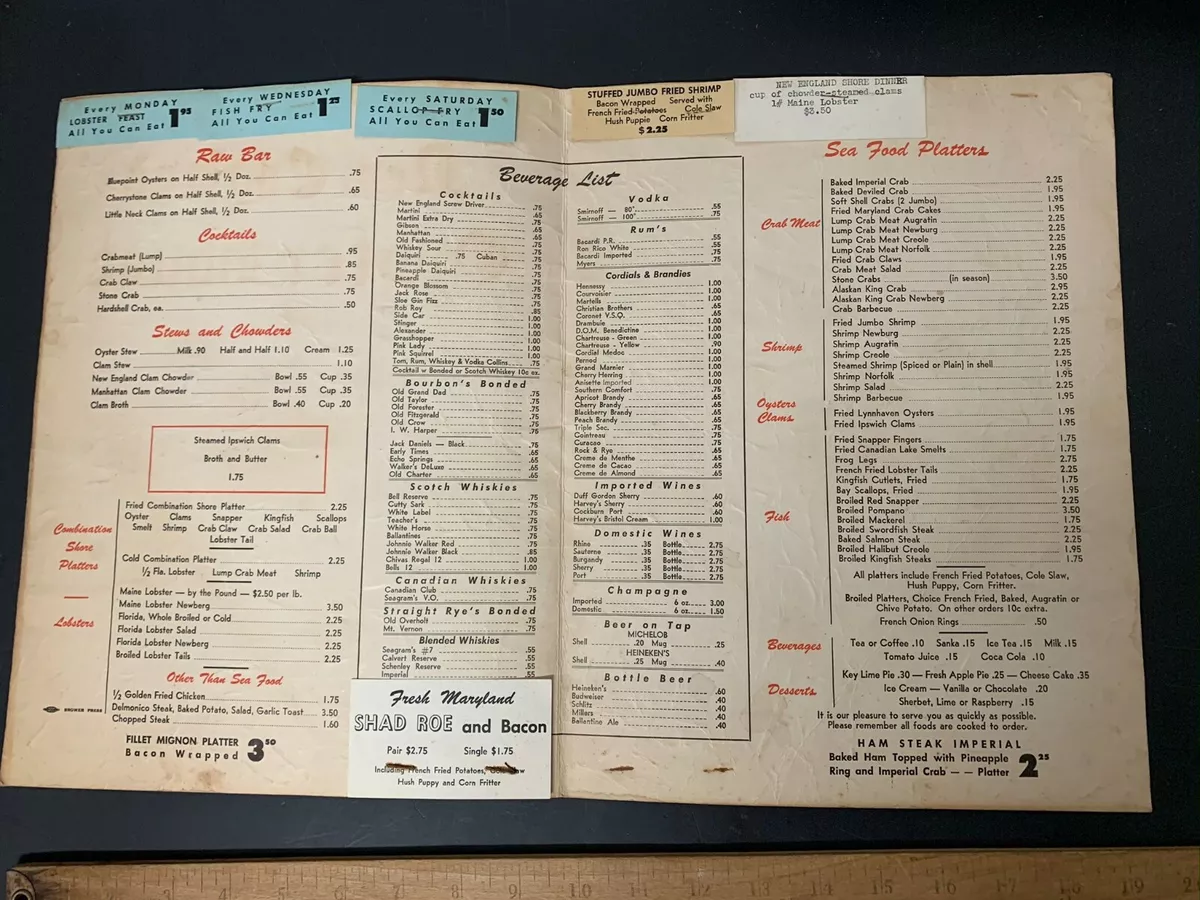 Every MONDAY
LOBSTER FEAST 1.95
All You Can Eat
Every WEDNESDAY
FISH FRY 1.25
All You Can Eat
Every SATURDAY
SCALLOP FRY 1.50
All You Can Eat
STUFFED JUMBO FRIED SHRIMP
Bacon Wrapped Served with
French Fried Potatoes Cole Slaw
Hush Puppie Corn Fritter
$2.25
NEW ENGLAND SHORE DINNER
cup of chowder-steamed clams
1# Maine Lobster
$3.50
Raw Bar
Bluepoint Oysters on Half Shell, ½ Doz. .75
Cherrystone Clams on Half Shell, ½ Doz. .65
Little Neck Clams on Half Shell, ½ Doz. .60
Cocktails
Crabmeat (Lump) .95
Shrimp (Jumbo) .85
Crab Claw .75
Stone Crab .75
Hardshell Crab, ea. .50
Stews and Chowders
Oyster Stew Milk .90 Half and Half 1.10 Cream 1.25
Clam Stew 1.10
New England Clam Chowder Bowl .55 Cup .35
Manhattan Clam Chowder Bowl .55 Cup .35
Clam Broth Bowl .40 Cup .20
Steamed Ipswich Clams
Broth and Butter
1.75
Combination
Shore
Platters
Fried Combination Shore Platter 2.25
Oyster Clams Snapper Kingfish Scallops
Smelt Shrimp Crab Claw Crab Salad Crab Ball
Lobster Tail
Cold Combination Platter 2.25
½ Fla. Lobster Lump Crab Meat Shrimp
Lobsters
Maine Lobster — by the Pound — $2.50 per lb.
Maine Lobster Newberg 3.50
Florida, Whole Broiled or Cold 2.25
Florida Lobster Salad 2.25
Florida Lobster Newberg 2.25
Broiled Lobster Tails 2.25
Other Than Sea Food
½ Golden Fried Chicken 1.75
Delmonico Steak, Baked Potato, Salad, Garlic Toast 3.50
Chopped Steak 1.60
FILLET MIGNON PLATTER 3.50
Bacon Wrapped
Beverage List
Cocktails
New England Screw Driver .75
Martini .65
Martini Extra Dry .75
Gibson .75
Manhattan .65
Old Fashioned .75
Whiskey Sour .75
Daiquiri .75 Cuban .75
Banana Daiquiri .75
Pineapple Daiquiri .75
Bacardi .75
Orange Blossom .75
Jack Rose .75
Sloe Gin Fizz .75
Rob Roy .85
Side Car 1.00
Stinger 1.00
Alexander 1.00
Grasshopper 1.00
Pink Lady 1.00
Pink Squirrel 1.00
Tom, Rum, Whiskey & Vodka Collins .75
Cocktail w Bonded or Scotch Whiskey 10c ex.
Bourbon's Bonded
Old Grand Dad .75
Old Taylor .75
Old Forester .75
Old Fitzgerald .75
Old Crow .75
I. W. Harper .75
Jack Daniels — Black .75
Early Times .65
Echo Springs .65
Walker's DeLuxe .65
Old Charter .65
Scotch Whiskies
Bell Reserve .75
Cutty Sark .75
White Label .75
Teacher's .75
White Horse .75
Ballantines .75
Johnnie Walker Red .75
Johnnie Walker Black .85
Chivas Regal 12 1.00
Bells 12 1.00
Canadian Whiskies
Canadian Club .75
Seagram's V.O. .75
Straight Rye's Bonded
Old Overholt .75
Mt. Vernon .75
Blended Whiskies
Seagram's #7 .55
Calvert Reserve .55
Schenley Reserve .55
Imperial .55
Fresh Maryland
SHAD ROE and Bacon
Pair $2.75 Single $1.75
Including French Fried Potatoes, Cole Slaw
Hush Puppy and Corn Fritter
Vodka
Smirnoff — 80° .55
Smirnoff — 100° .75
Rum's
Bacardi P.R. .55
Ron Rico White .55
Bacardi Imported .75
Myers .75
Cordials & Brandies
Hennessy 1.00
Courvoisier 1.00
Martells 1.00
Christian Brothers .65
Coronet V.S.Q. .65
Drambuie 1.00
D.O.M. Benedictine 1.00
Chartreuse - Green 1.00
Chartreuse - Yellow .90
Cordial Medoc 1.00
Pernod 1.00
Grand Marnier 1.00
Cherry Herring 1.00
Anisette Imported 1.00
Southern Comfort .75
Apricot Brandy .65
Cherry Brandy .65
Blackberry Brandy .65
Peach Brandy .65
Triple Sec. .65
Cointreau .75
Curacao .65
Rock & Rye .65
Creme de Menthe .65
Creme de Cacao .65
Creme de Almond .65
Imported Wines
Duff Gordon Sherry .60
Harvey's Sherry .60
Cockburn Port .60
Harvey's Bristol Cream 1.00
Domestic Wines
Rhine .35 Bottle 2.75
Sauterne .35 Bottle 2.75
Burgandy .35 Bottle 2.75
Sherry .35 Bottle 2.75
Port .35 Bottle 2.75
Champagne
Imported 6 oz. 3.00
Domestic 6 oz. 1.50
Beer on Tap
MICHELOB
Shell .20 Mug .25
HEINEKEN'S
Shell .25 Mug .40
Bottle Beer
Heineken's .60
Budweiser .40
Schlitz .40
Millers .40
Ballantine Ale .40
Sea Food Platters
Crab Meat
Baked Imperial Crab 2.25
Baked Deviled Crab 1.95
Soft Shell Crabs (2 Jumbo) 1.95
Fried Maryland Crab Cakes 1.95
Lump Crab Meat Augratin 2.25
Lump Crab Meat Newburg 2.25
Lump Crab Meat Creole 2.25
Lump Crab Meat Norfolk 2.25
Fried Crab Claws 1.95
Crab Meat Salad 2.25
Stone Crabs (in season) 3.50
Alaskan King Crab 2.95
Alaskan King Crab Newberg 2.25
Crab Barbecue 2.25
Shrimp
Fried Jumbo Shrimp 1.95
Shrimp Newburg 2.25
Shrimp Augratin 2.25
Shrimp Creole 2.25
Steamed Shrimp (Spiced or Plain) in shell 1.95
Shrimp Norfolk 1.95
Shrimp Salad 2.25
Shrimp Barbecue 1.95
Oysters
Clams
Fried Lynnhaven Oysters 1.95
Fried Ipswich Clams 1.95
Fish
Fried Snapper Fingers 1.75
Fried Canadian Lake Smelts 1.75
Frog Legs 2.75
French Fried Lobster Tails 2.25
Kingfish Cutlets, Fried 1.75
Bay Scallops, Fried 1.95
Broiled Red Snapper 2.25
Broiled Pompano 3.50
Broiled Mackerel 1.75
Broiled Swordfish Steak 2.25
Baked Salmon Steak 2.25
Broiled Halibut Creole 1.95
Broiled Kingfish Steaks 1.75
All platters include French Fried Potatoes, Cole Slaw,
Hush Puppy, Corn Fritter.
Broiled Platters, Choice French Fried, Baked, Augratin or
Chive Potato. On other orders 10c extra.
French Onion Rings .50
Beverages
Tea or Coffee .10 Sanka .15 Ice Tea .15 Milk .15
Tomato Juice .15 Coca Cola .10
Desserts
Key Lime Pie .30 — Fresh Apple Pie .25 — Cheese Cake .35
Ice Cream — Vanilla or Chocolate .20
Sherbet, Lime or Raspberry .15
It is our pleasure to serve you as quickly as possible.
Please remember all foods are cooked to order.
HAM STEAK IMPERIAL
Baked Ham Topped with Pineapple
Ring and Imperial Crab — — Platter 2.25